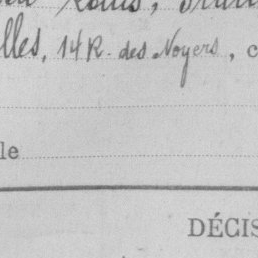 Louis,
lles, 14 R. des Noyers, c
le
DÉCIS